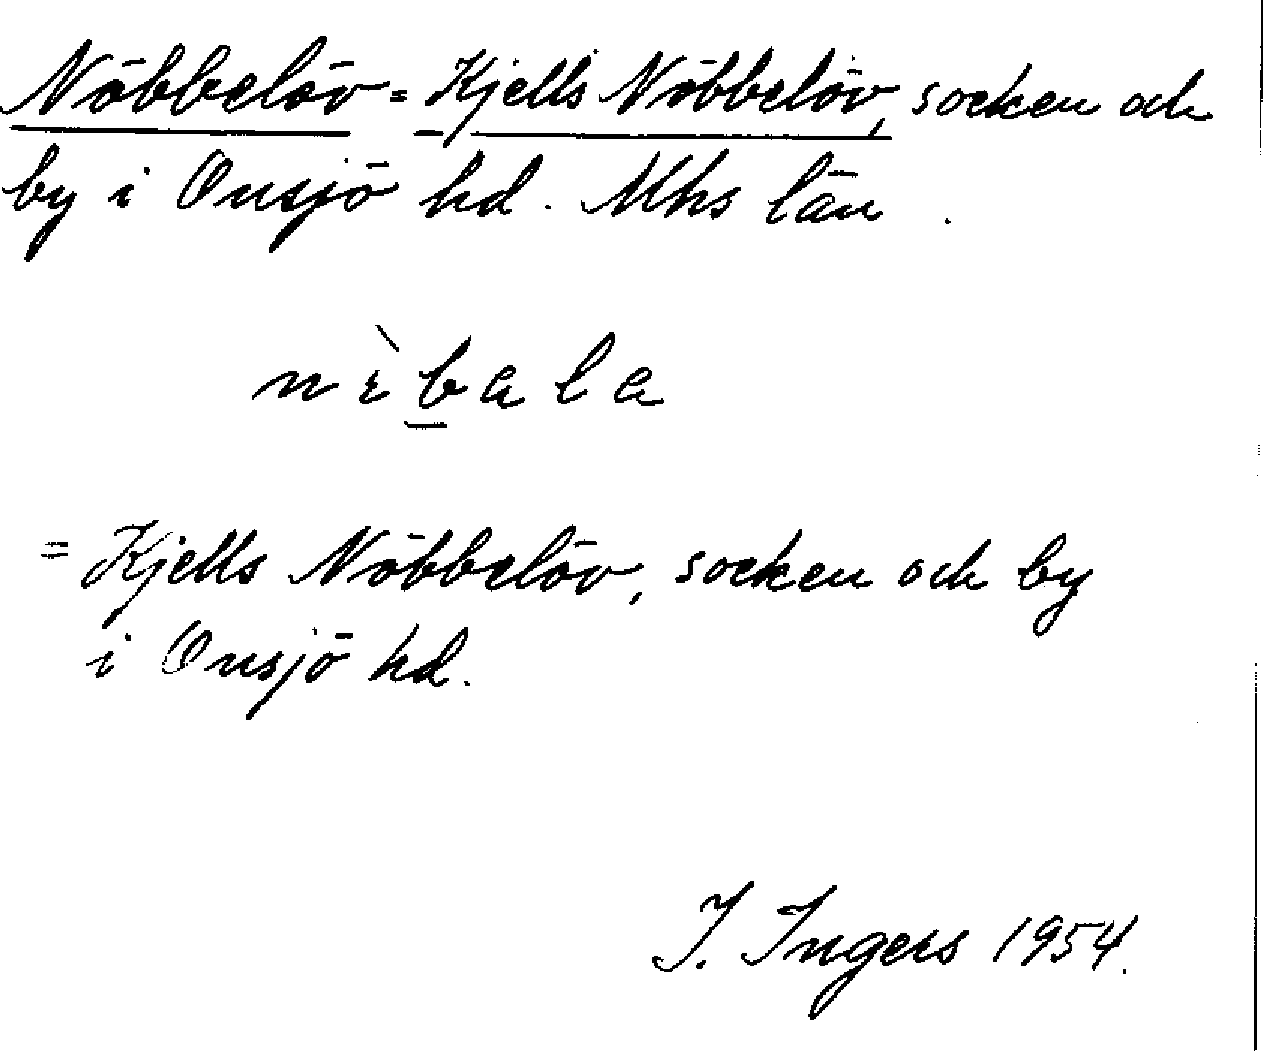 Nöbbelöv = Kjells Nöbbelöv, socken och
by i Onsjö hd. Mhs län.
nɪ̀b̲ala
= Kjells Nöbbelöv, socken och by
i Onsjö hd.
I. Ingers 1954.